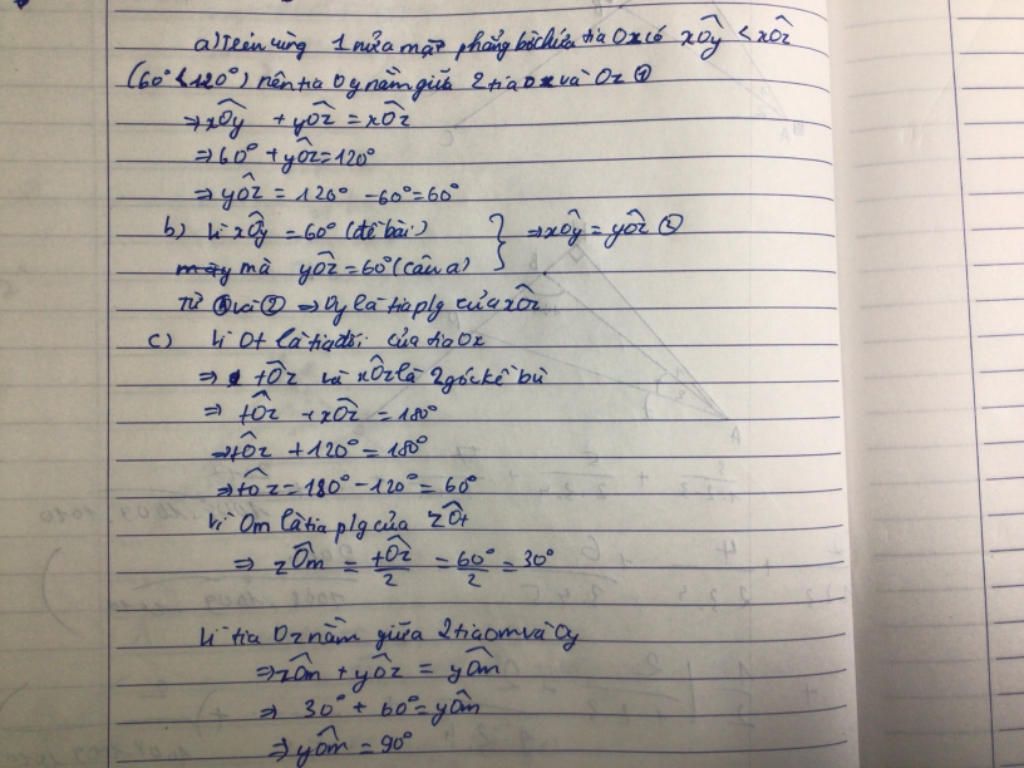 a) Trên cùng 1 nửa mặt phẳng bờ chứa tia Ox có xÔy < xÔz
(60° < 120°) nên tia Oy nằm giữa 2 tia Ox và Oz ①
⇒ xÔy + yÔz = xÔz
⇒ 60° + yÔz = 120°
⇒ yÔz = 120° - 60° = 60°
b) Vì xÔy = 60° (đề bài) } ⇒ xÔy = yÔz ②
mà yÔz = 60° (câu a)
Từ ① và ② ⇒ Oy là tia p/g của xÔz
c) Vì Ot là tia đối của tia Ox
⇒ tÔz và xÔz là 2 góc kề bù
⇒ tÔz + xÔz = 180°
⇒ tÔz + 120° = 180°
⇒ tÔz = 180° - 120° = 60°
Vì Om là tia p/g của zÔt
⇒ zÔm = tÔz/2 = 60°/2 = 30°
Vì tia Oz nằm giữa 2 tia Om và Oy
⇒ zÔm + yÔz = yÔm
⇒ 30° + 60° = yÔm
⇒ yÔm = 90°